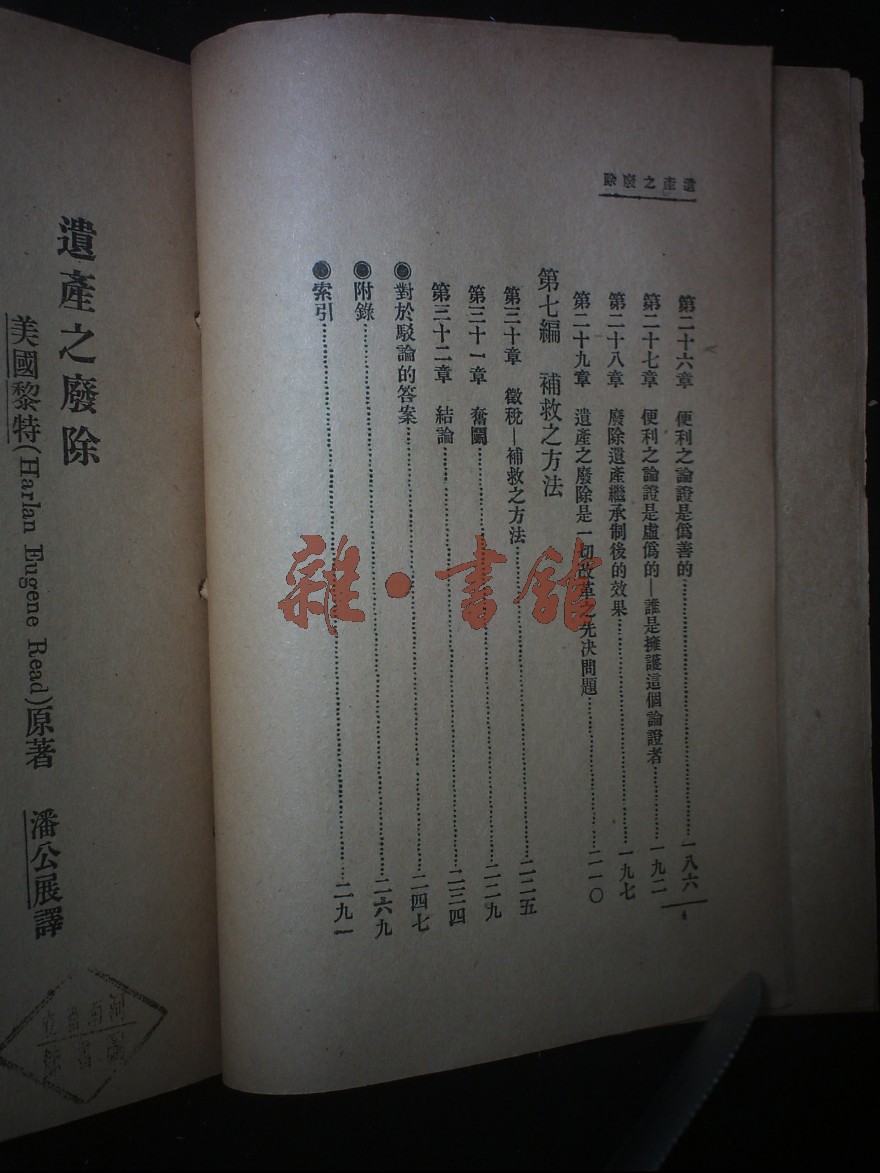 遺產之廢除
第二十六章　便利之論證是僞善的……一八六
4
第二十七章　便利之論證是虛僞的—誰是擁護這個論證者……一九二
第二十八章　廢除遺產繼承制後的效果……一九七
第二十九章　遺產之廢除是一切改革之先決問題……二一〇
第七編　補救之方法
第三十章　徵稅—補救之方法……二二五
第三十一章　奮鬭……二二九
第三十二章　結論……二三四
●對於駁論的答案……二四七
●附錄……二六九
●索引……二九一
雜·書館
遺產之廢除
美國黎特(Harlan Eugene Read)原著　潘公展譯